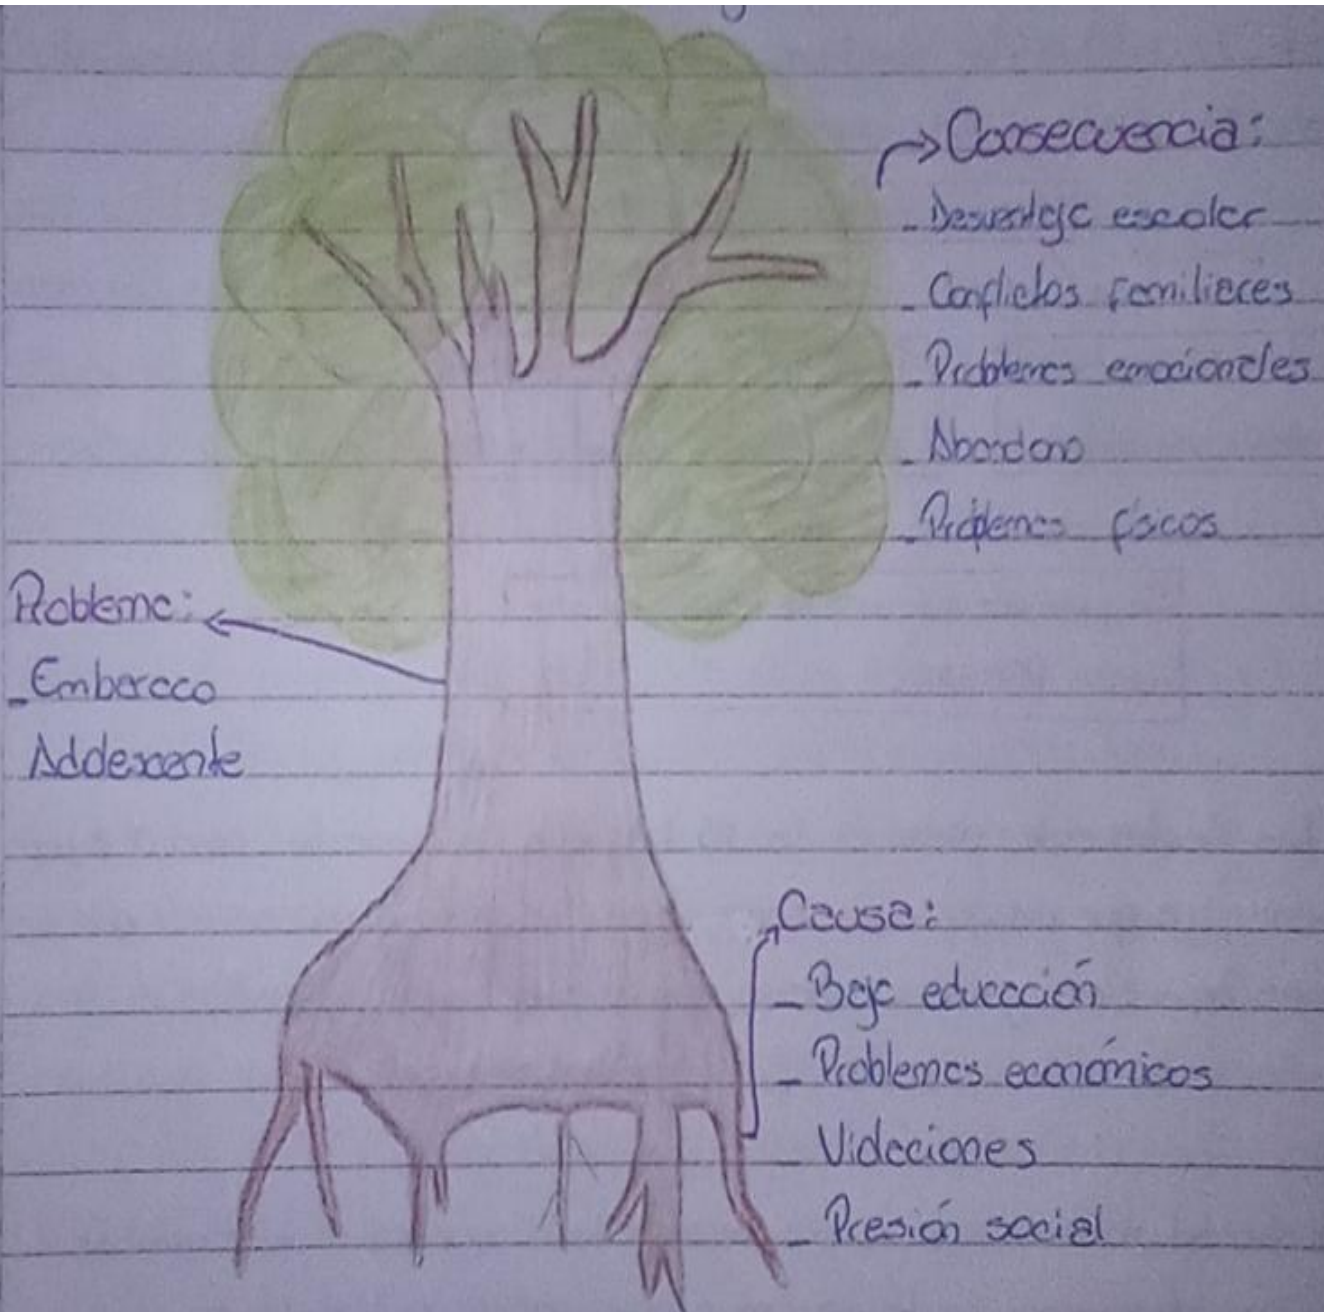 Consecuencia:
- Desventaja escolar
- Conflictos familiares
- Problemas emocionales
- Abandono
- Problemas físicos
Problema:
- Embarazo
Adolescente
Causa:
- Baja educación
- Problemas económicos
- Violaciones
- Presión social